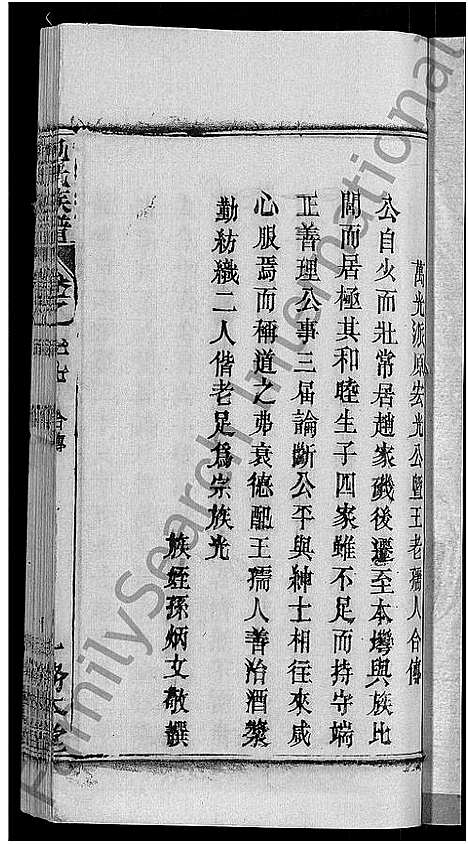 萬光派原宏光公暨王老孺人合傳
公自少而壯常居趙家磯後遷至本灣與族比
閭而居極其和睦生子四家雖不足而持守端
正善理公事三届論斷公平與紳士相往來咸
心服焉而稱道之弗衰德配王孺人善治酒漿
勤紡織二人偕老足爲宗族光
族姪孫炳文敬撰
氏族譜
合傳
FamilySearch International